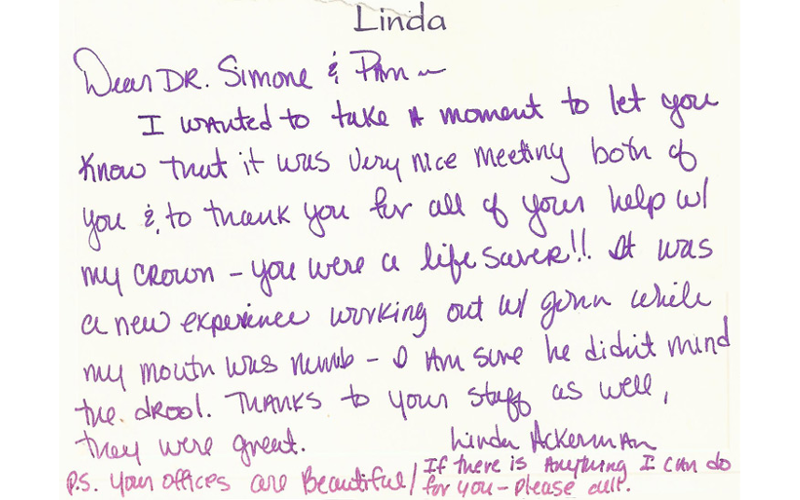 Linda
Dear DR. Simone & Pam ~
I wanted to take A moment to let you
know that it was very nice meeting both of
you & to thank you for all of your help w/
my crown - you were a life saver!! It was
a new experience working out w/ while
my mouth was numb - I Am sure he didn't mind
the drool. THANKS to your staff as well,
they were great. Linda Ackerman
P.S. Your offices are Beautiful / If there is Anything I can do
for you - please call.